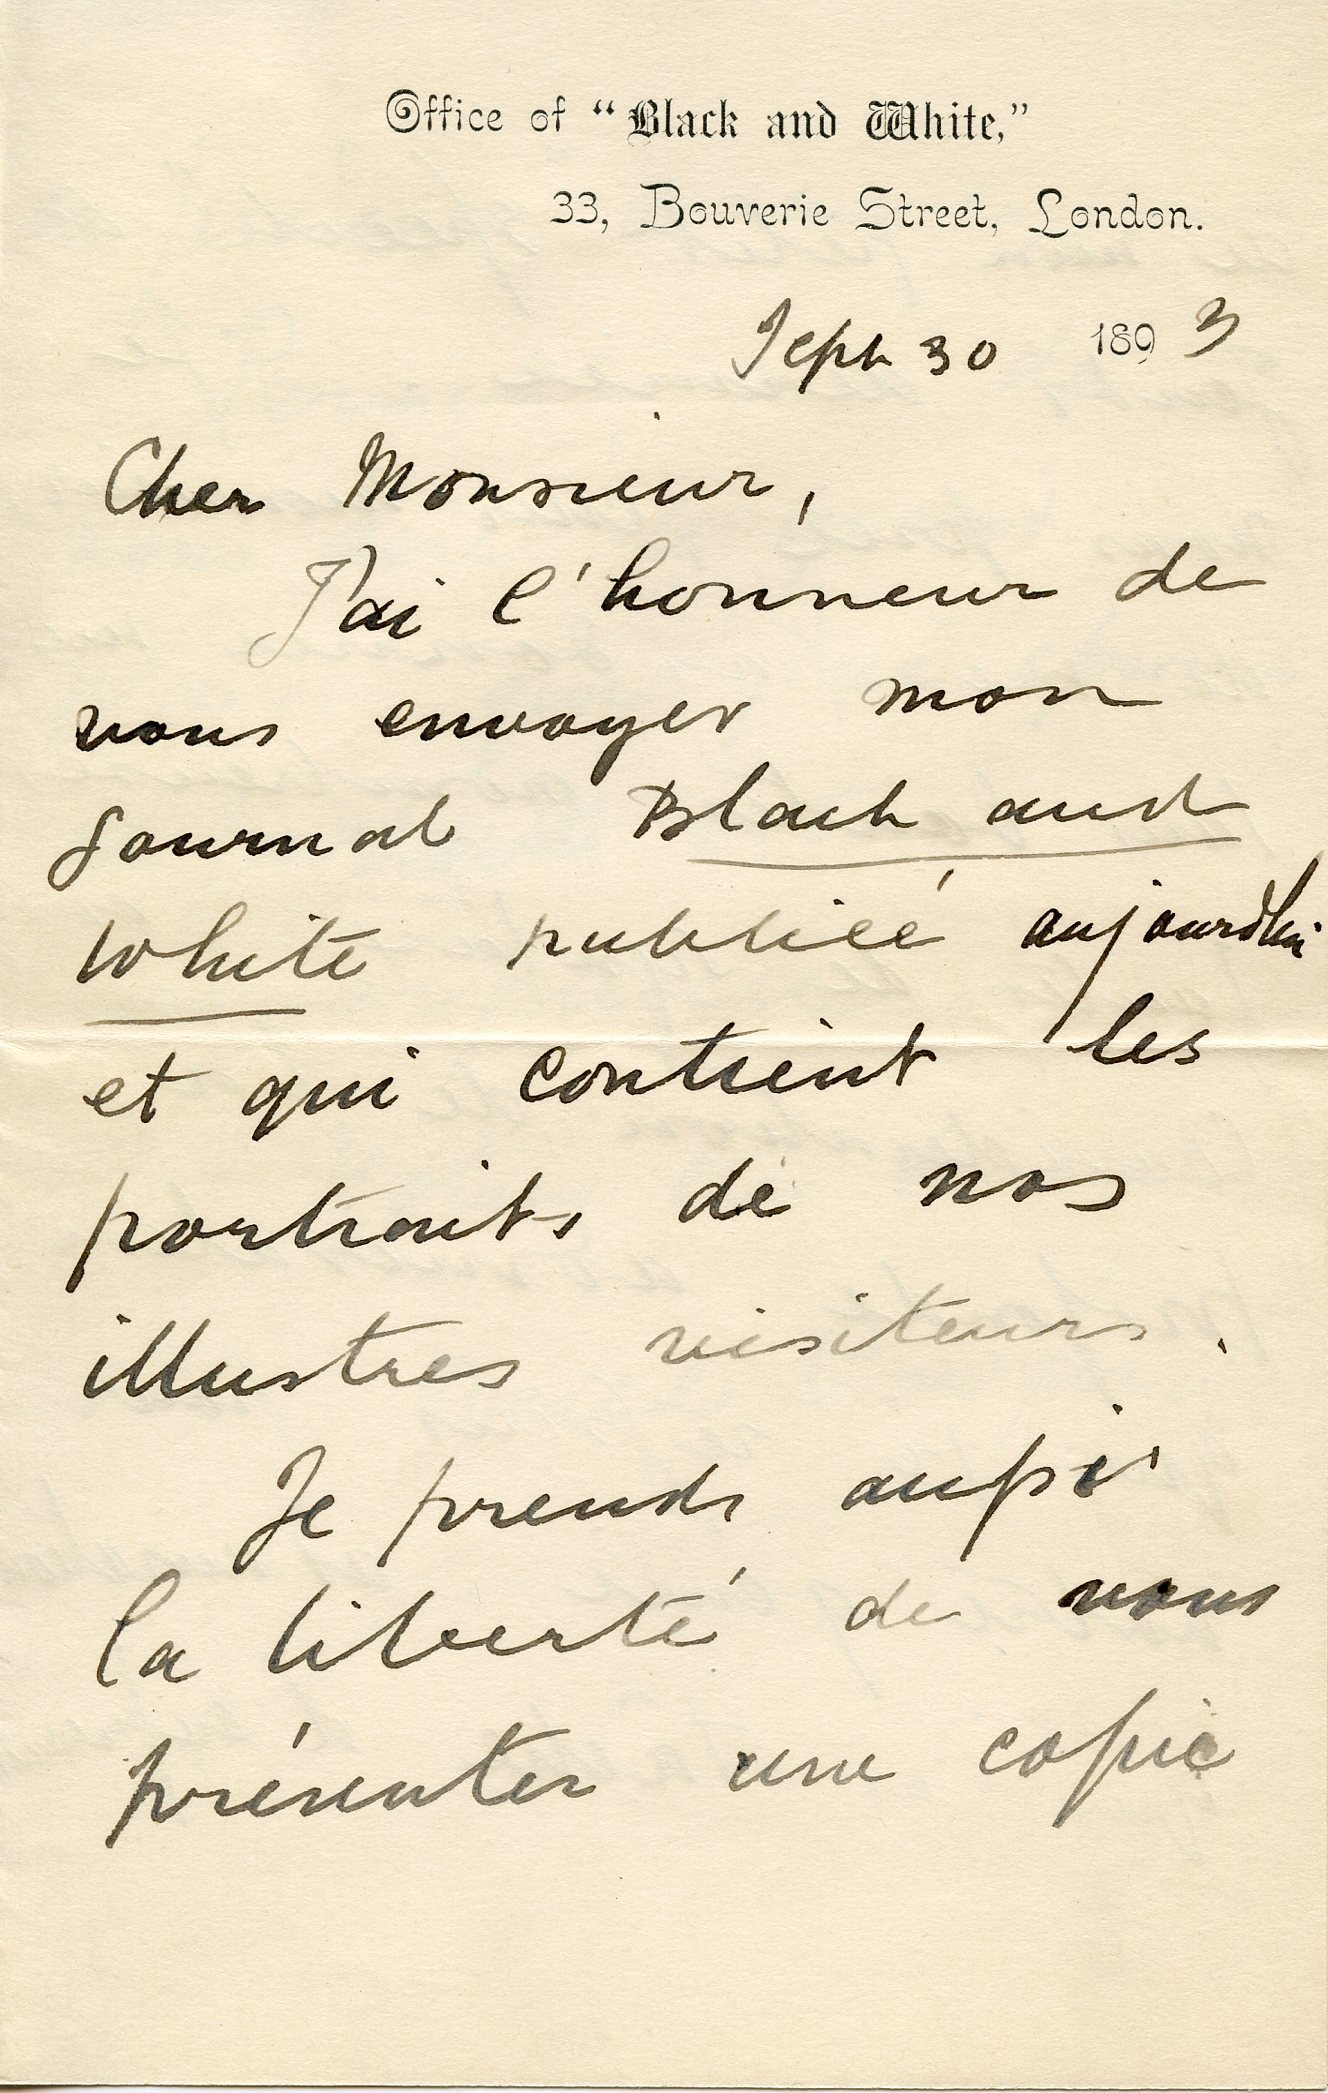 Office of "Black and White,"
33, Bouverie Street, London.
Sept 30 1893
Cher Monsieur,
J'ai l'honneur de
vous envoyer mon
journal Black and
White publiée aujourdhui
et qui contient les
portraits de nos
illustres visiteurs.
Je prends aussi
la liberté de vous
présenter une copie